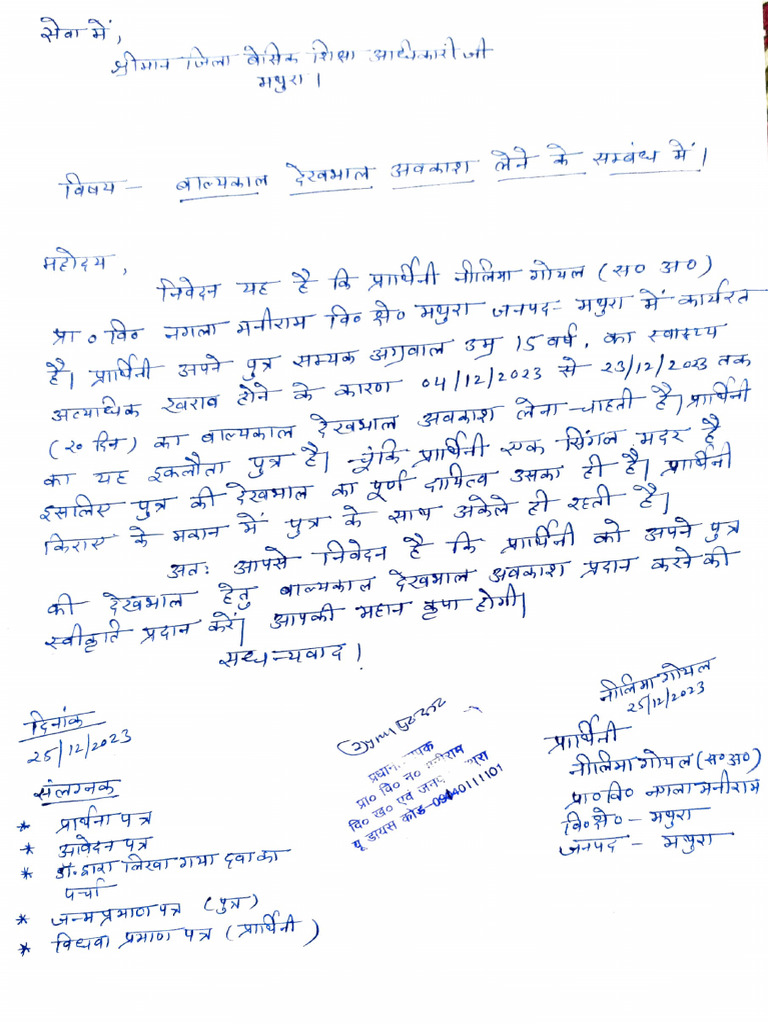 सेवा में,
श्रीमान जिला बेसिक शिक्षा अधिकारी जी
मथुरा।
विषय – बाल्यकाल देखभाल अवकाश लेने के सम्बंध में।
महोदय,
निवेदन यह है कि प्रार्थिनी नीलिमा गोयल (स० अ०)
प्रा० वि० नगला मनीराम वि० क्षे० मथुरा जनपद- मथुरा में कार्यरत
है। प्रार्थिनी अपने पुत्र सम्यक अग्रवाल उम्र 15 वर्ष, का स्वास्थ्य
अत्याधिक खराब होने के कारण 04/12/2023 से 23/12/2023 तक
(२० दिन) का बाल्यकाल देखभाल अवकाश लेना चाहती है। प्रार्थिनी
का यह इकलौता पुत्र है। चूंकि प्रार्थिनी एक सिंगल मदर है
इसलिए पुत्र की देखभाल का पूर्ण दायित्व उसका ही है। प्रार्थिनी
किराए के मकान में पुत्र के साथ अकेले ही रहती है।
अतः आपसे निवेदन है कि प्रार्थिनी को अपने पुत्र
की देखभाल हेतु बाल्यकाल देखभाल अवकाश प्रदान करने की
स्वीकृति प्रदान करें। आपकी महान कृपा होगी।
सधन्यवाद।
दिनांक
25/12/2023
संलग्नक
* प्रार्थना पत्र
* आवेदन पत्र
* डॉ. द्वारा लिखा गया दवा का
पर्चा
* जन्म प्रमाण पत्र (पुत्र)
* विधवा प्रमाण पत्र (प्रार्थिनी)
प्रा० वि० न०
वि० ख० एवं
यू डायस कोड-
नीलिमा गोयल
25/12/2023
प्रार्थिनी
नीलिमा गोयल (स० अ०)
प्रा० वि० नगला मनीराम
वि० क्षे० – मथुरा
जनपद – मथुरा